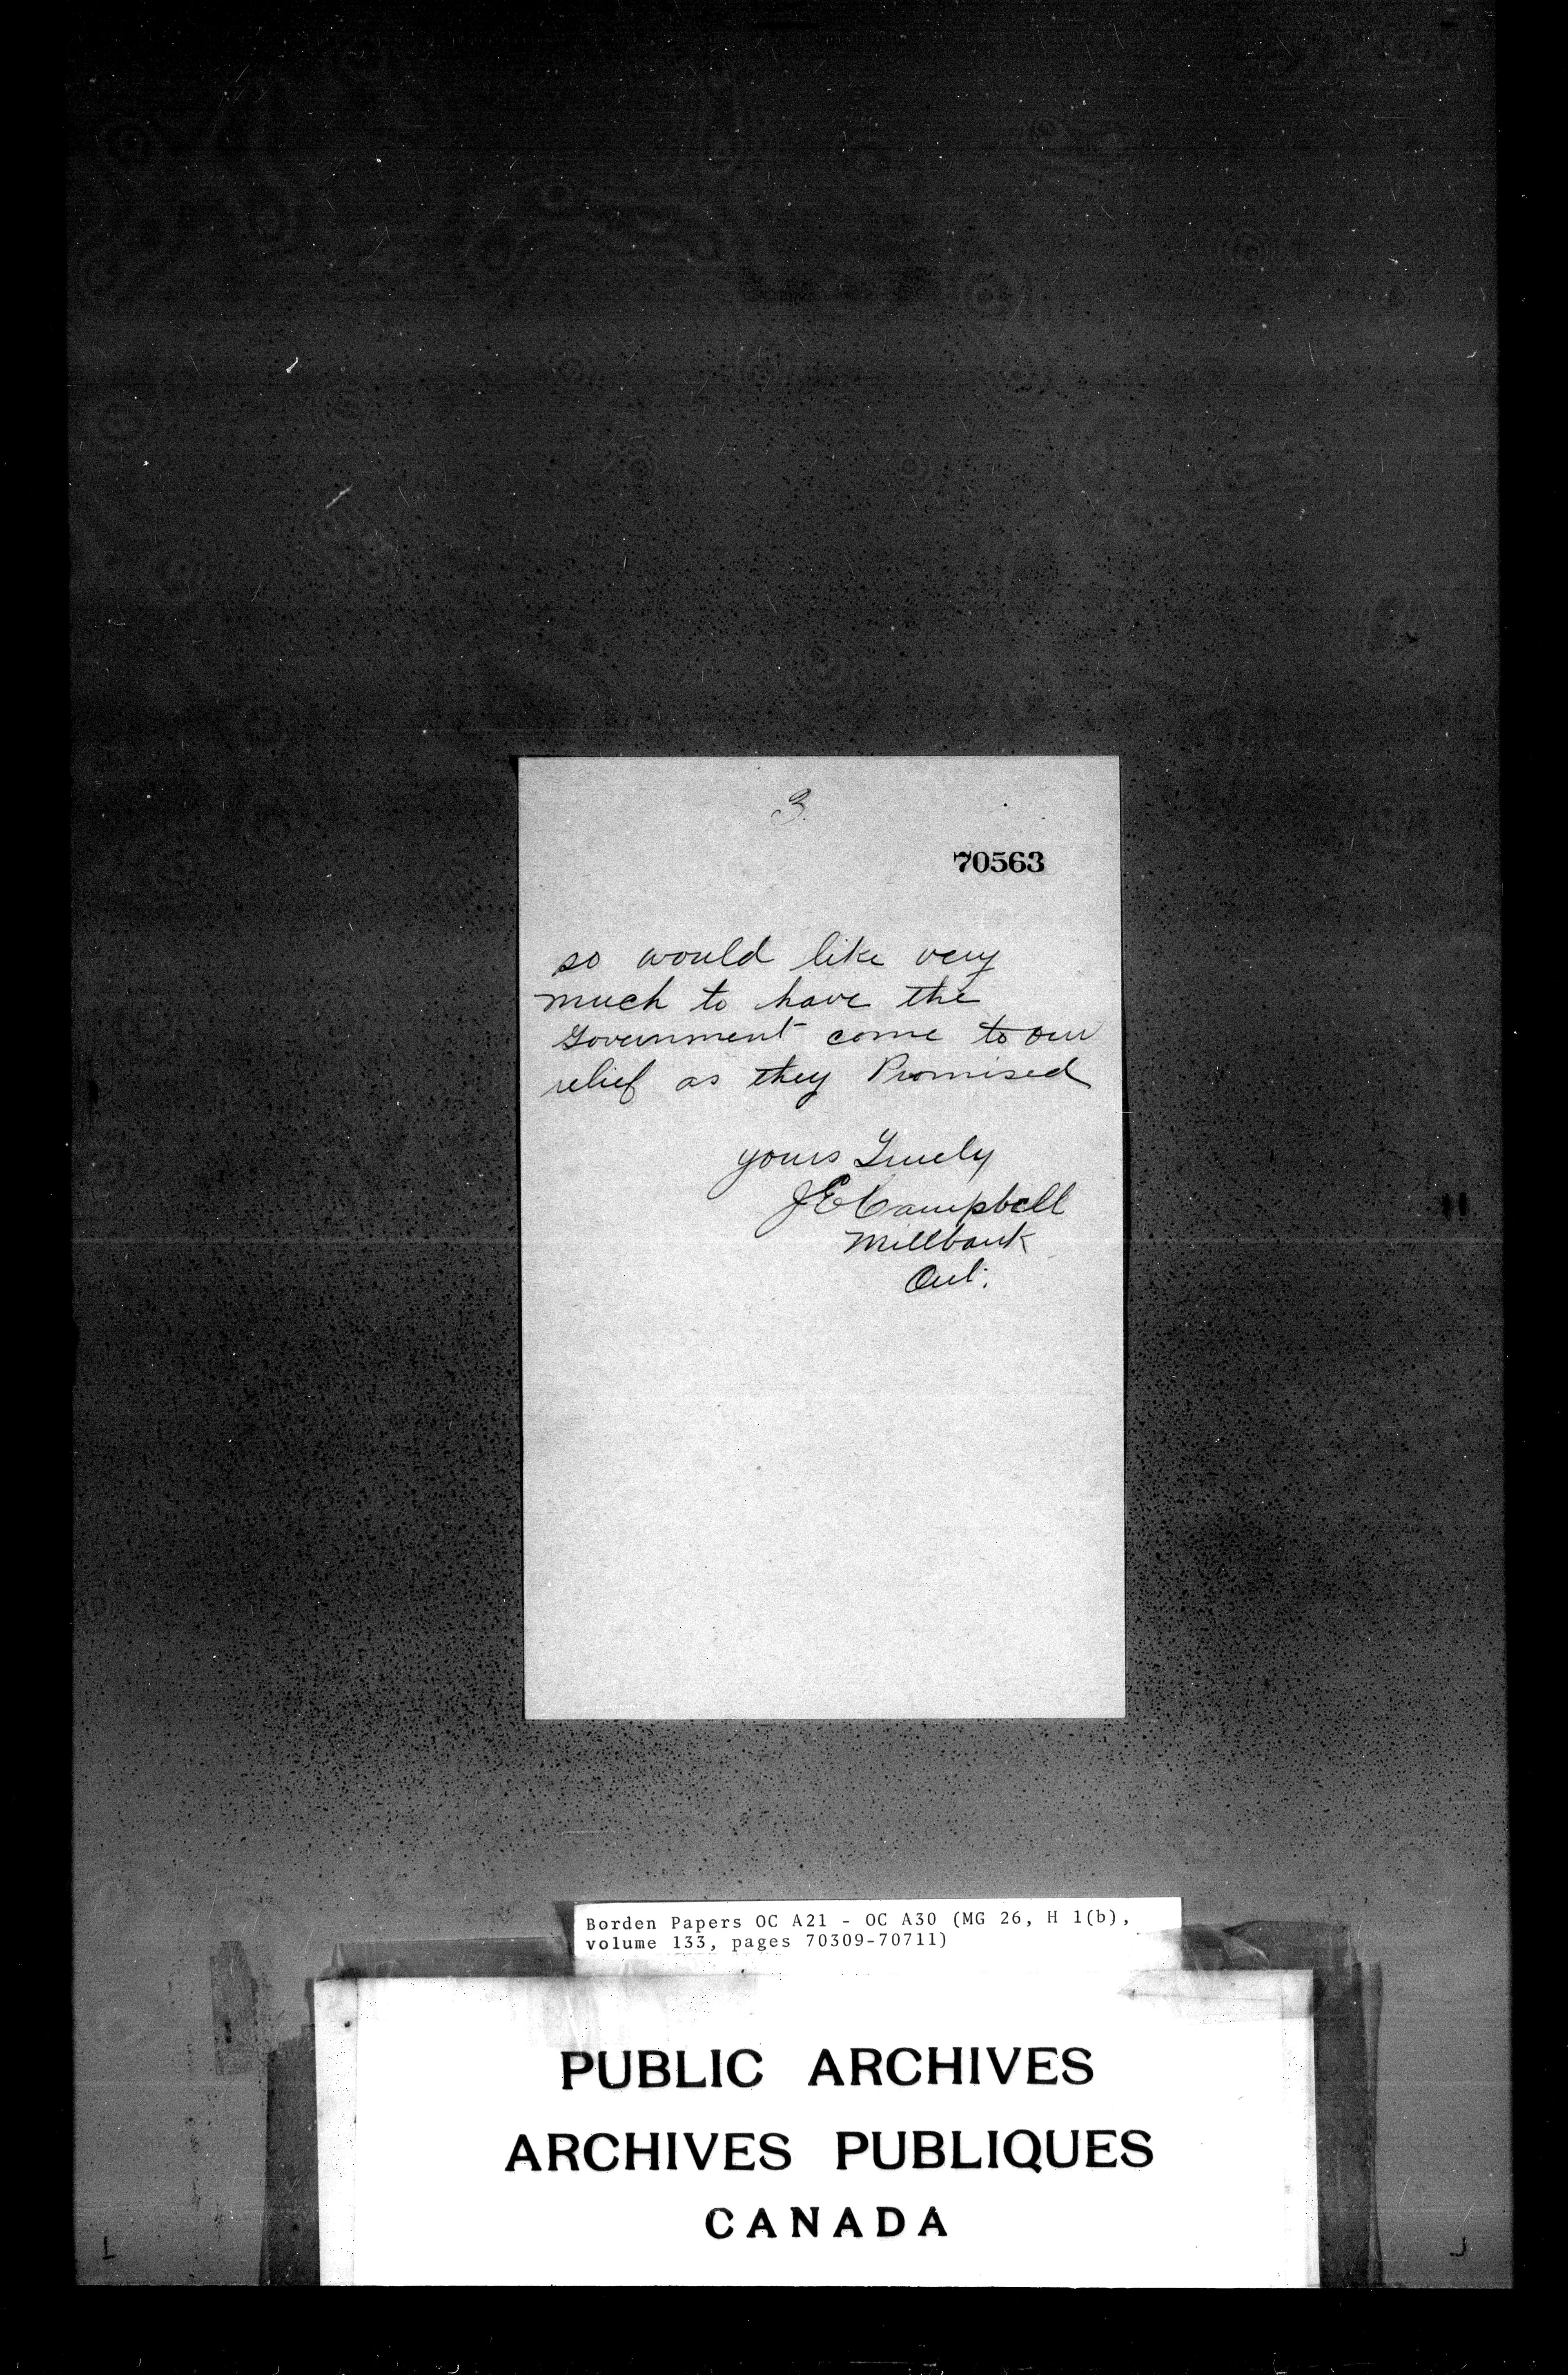 3.
70563
so would like very
much to have the
Government come to our
relief as they Promised
yours Truely
J E Campbell
Millbank
Ont.
Borden Papers OC A21 - OC A30 (MG 26, H 1(b),
volume 133, pages 70309-70711)
PUBLIC ARCHIVES
ARCHIVES PUBLIQUES
CANADA